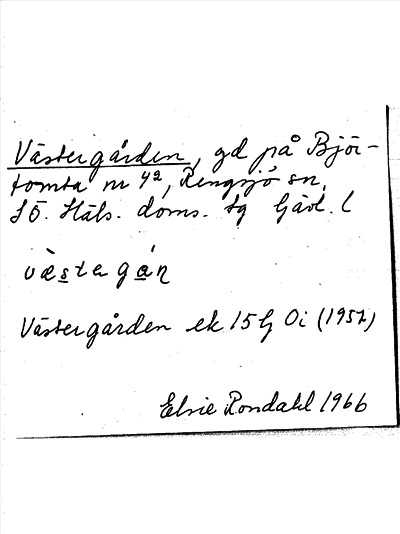 Västergården, gd på Björ-
tomta nr 42, Rengsjö sn,
SÖ. Häls. doms. tg Gävl. l
västegán
Västergården ek 15G Oi (1957)
Elsie Rondahl 1966